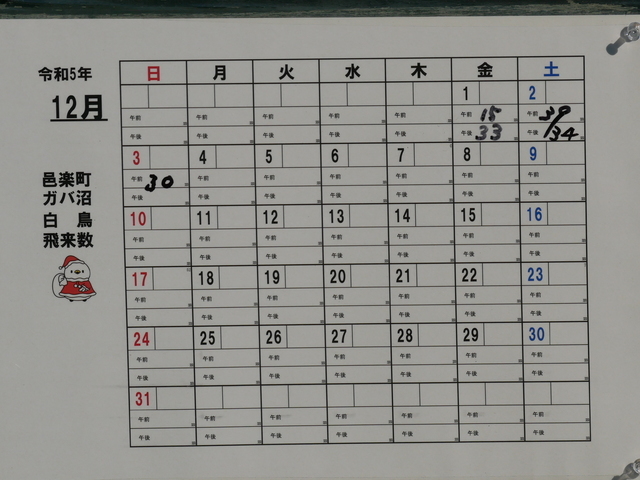 令和5年
12月
邑楽町
ガバ沼
白鳥
飛来数
日 月 火 水 木 金 土
1 2
午前 午前 午前 午前 午前 午前 15 午前 39
午後 午後 午後 午後 午後 午後 33 午後 134
3 4 5 6 7 8 9
午前 30 午前 午前 午前 午前 午前 午前
午後 午後 午後 午後 午後 午後 午後
10 11 12 13 14 15 16
午前 午前 午前 午前 午前 午前 午前
午後 午後 午後 午後 午後 午後 午後
17 18 19 20 21 22 23
午前 午前 午前 午前 午前 午前 午前
午後 午後 午後 午後 午後 午後 午後
24 25 26 27 28 29 30
午前 午前 午前 午前 午前 午前 午前
午後 午後 午後 午後 午後 午後 午後
31
午前 午前 午前 午前 午前 午前 午前
午後 午後 午後 午後 午後 午後 午後